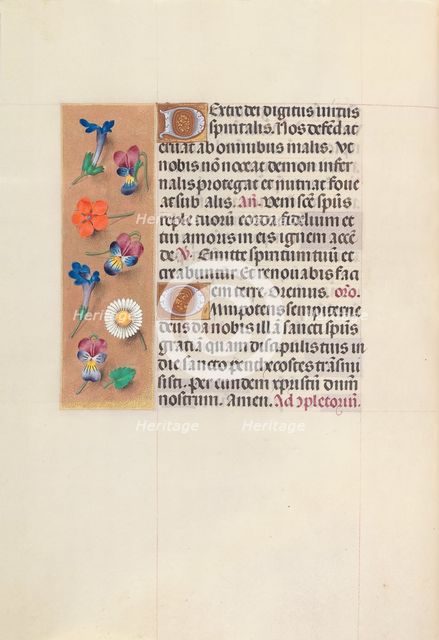 Dextre dei digitus virtus
spiritalis. Nos defendat
eruat ab omnibus malis. Vt
nobis nō noceat demon infer
nalis protegat et nutriat foue
at sub alis. Añ. Veni scē sp̄us
reple tuorum corda fidelium et
tui amoris in eis ignem accē
de. V̄. Emitte spiritum tuū et
creabuntur Et renouabis faci
em terre. Oremus. orō.
Omnipotens sempiterne
deus da nobis illā sancti sp̄us
gratiā quam discipulis tuis in
die sancto penthecostes trāsmi
sisti. Per eundem xp̄istū dn̄m
nostrum. Amen. Ad ɔpletoriū.
Heritage Heritage
Heritage Heritage
Heritage Heritage